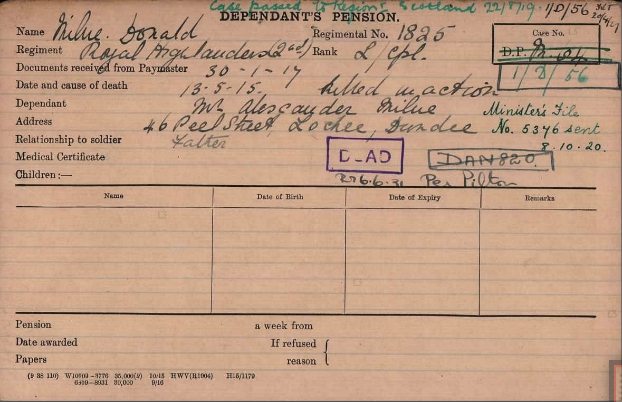 Case passed to Region Scotland 22/8/19. 1/D/56
DEPENDANT'S PENSION.
Name Milne. Donald Regimental No. 1825
Case No.
Regiment Royal Highlanders (2nd) Rank L/Cpl.
D.P.
Documents received from Paymaster 30-1-17
1/D/56
Date and cause of death 13-5-15. Killed in action
Dependant Mr Alexander Milne
Minister's File
Address 46 Peel Street, Lochee, Dundee
No. 5376 sent
Relationship to soldier Father
8.10.20.
Medical Certificate
D_AD
DAN820.
Children :—
Per Pilton
Name Date of Birth Date of Expiry Remarks
Pension a week from
Date awarded If refused
Papers reason
(9 38 110) W10909—3776 35,000(2) 10/15 HWV(R1004) H15/1179
6809—8931 30,000 9/16